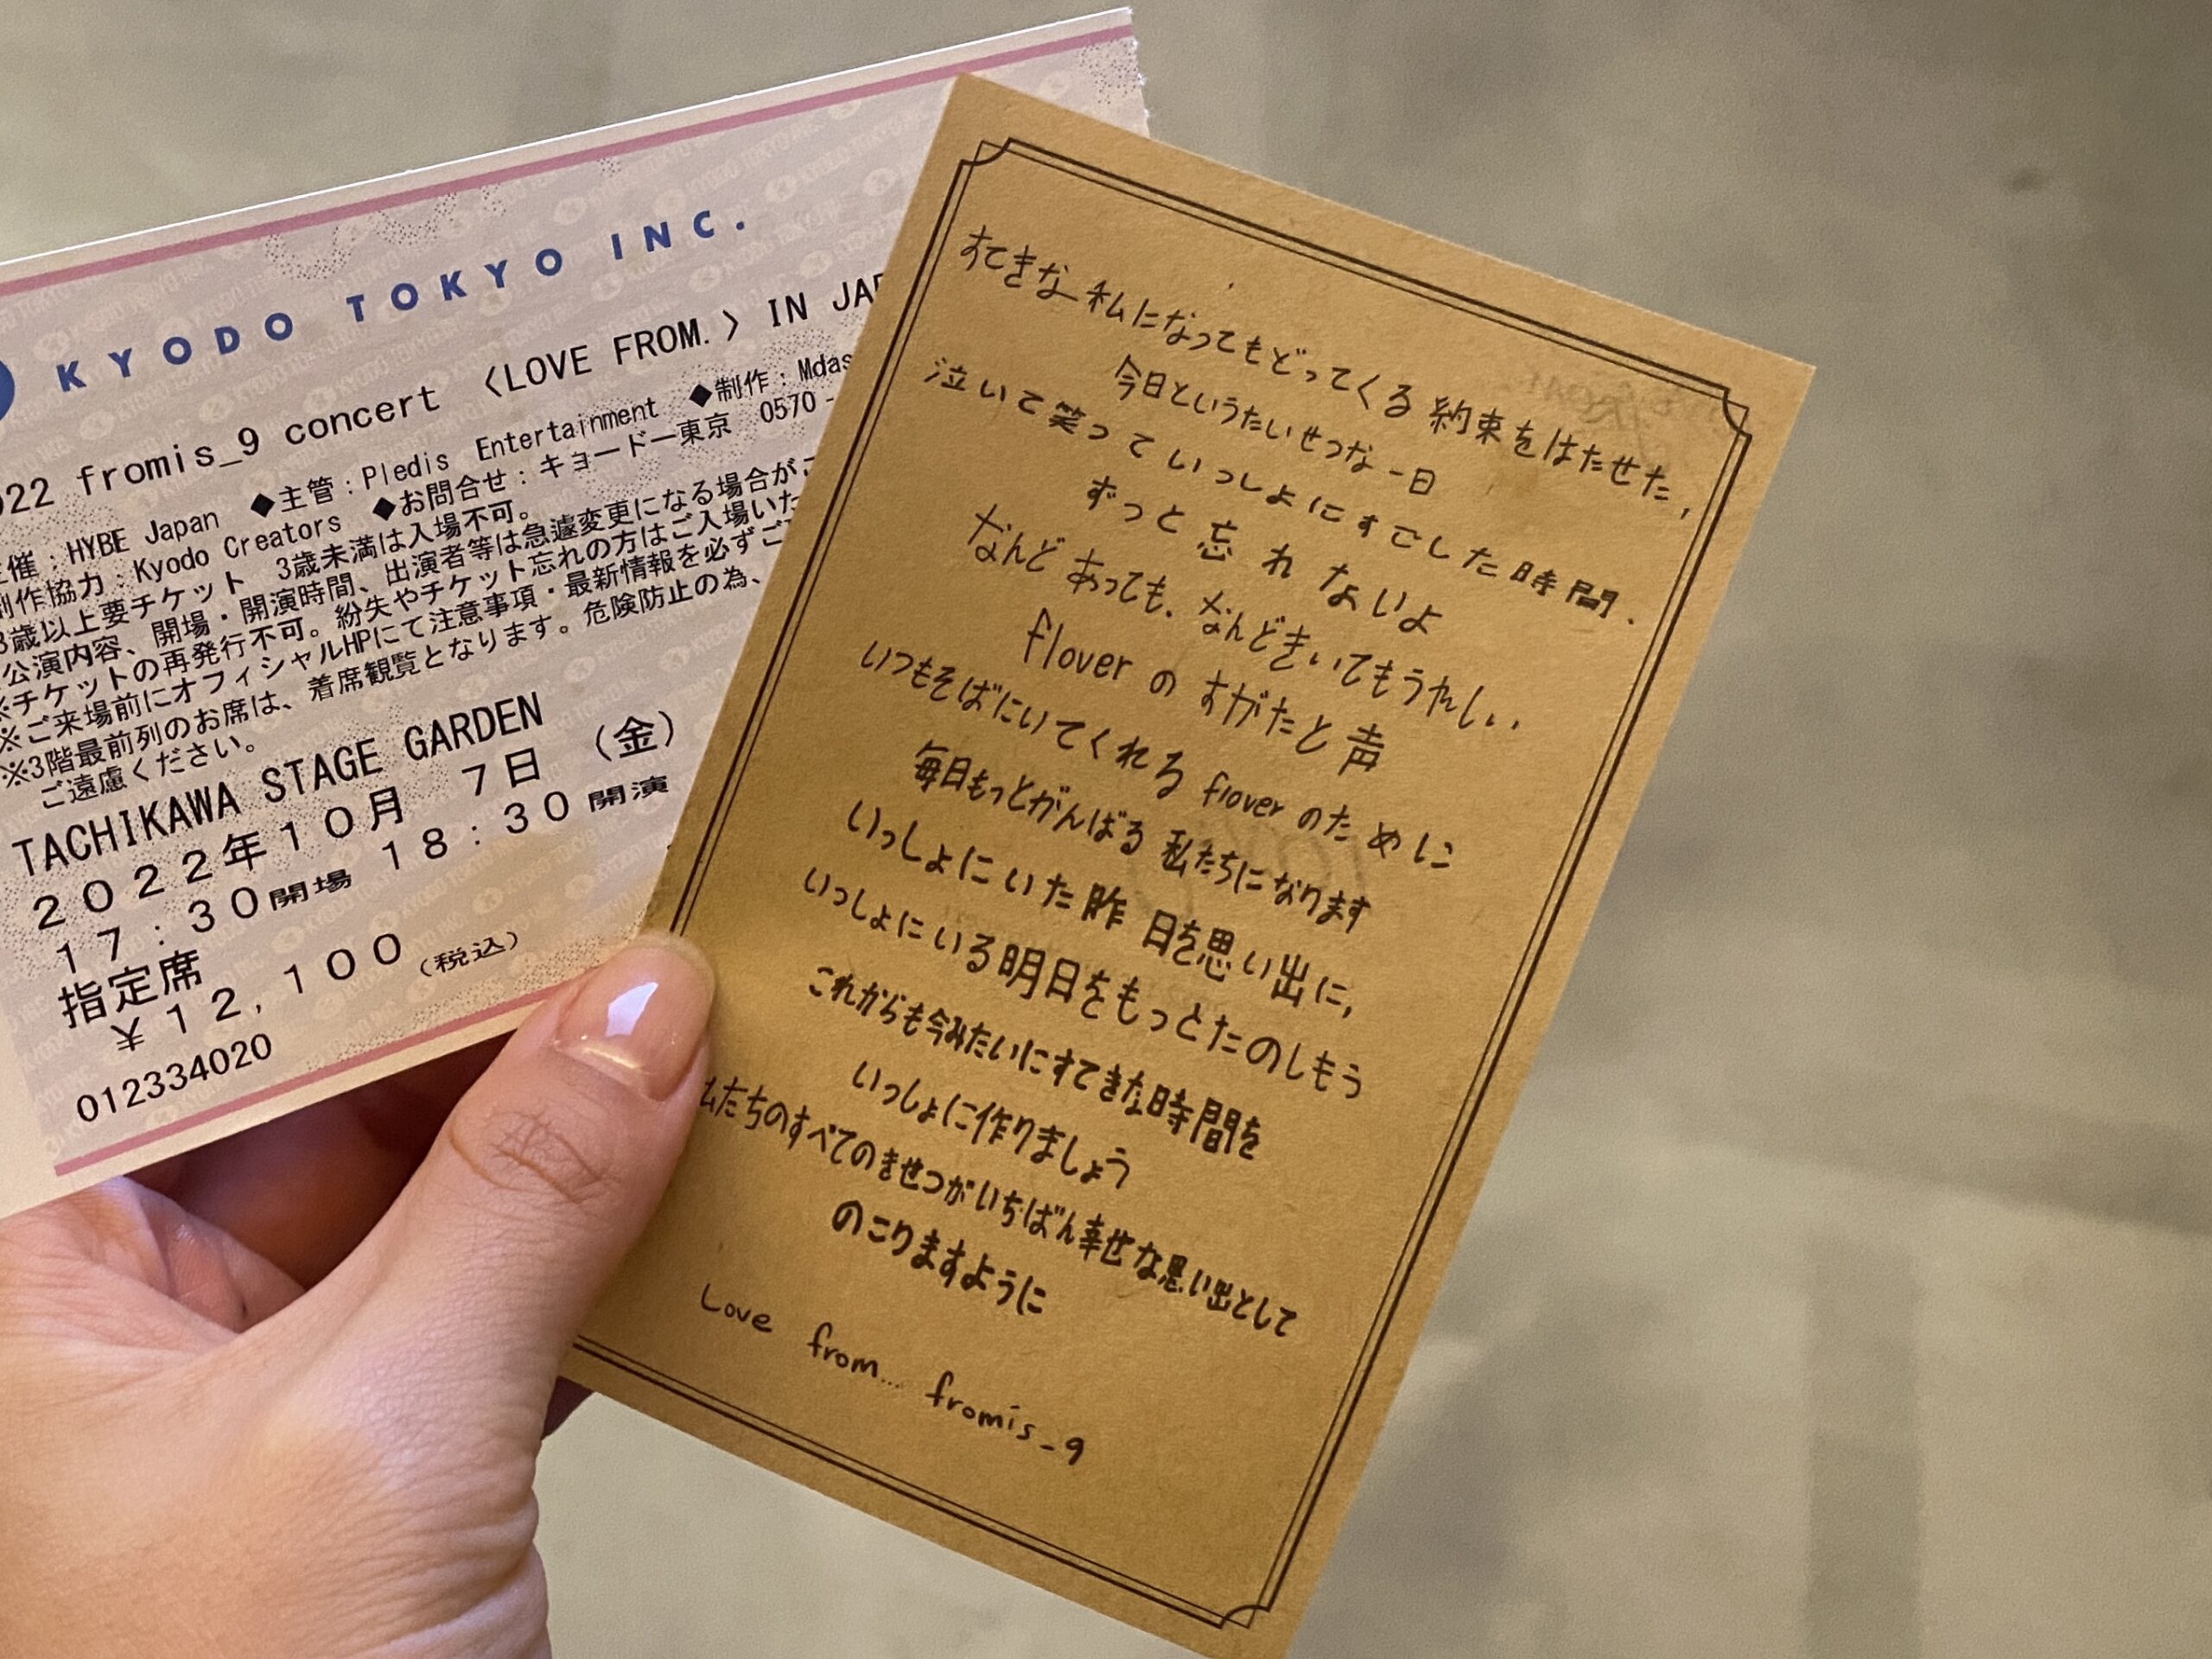 KYODO TOKYO INC.
022 fromis_9 concert 〈LOVE FROM.〉 IN JAP
催：HYBE Japan ◆主管：Pledis Entertainment ◆制作：Mdas
制作協力：Kyodo Creators ◆お問合せ：キョードー東京 0570-
3歳以上要チケット 3歳未満は入場不可。
公演内容、開場・開演時間、出演者等は急遽変更になる場合がご
※チケットの再発行不可。紛失やチケット忘れの方はご入場いた
※ご来場前にオフィシャルHPにて注意事項・最新情報を必ずご
※3階最前列のお席は、着席観覧となります。危険防止の為、
ご遠慮ください。
TACHIKAWA STAGE GARDEN
2022年10月 7日 （金）
17：30開場 18：30開演
指定席
￥12,100（税込）
012334020
すてきな私になってもどってくる約束をはたせた,
今日というたいせつな一日
泣いて笑っていっしょにすごした時間.
ずっと忘れないよ
なんどあっても、なんどきいてもうれしい
floverのすがたと声
いつもそばにいてくれるfloverのために
毎日もっとがんばる私たちになります
いっしょにいた昨日を思い出に,
いっしょにいる明日をもっとたのしもう
これからも今みたいにすてきな時間を
いっしょに作りましょう
私たちのすべてのきせつがいちばん幸せな思い出として
のこりますように
Love from... fromis_9